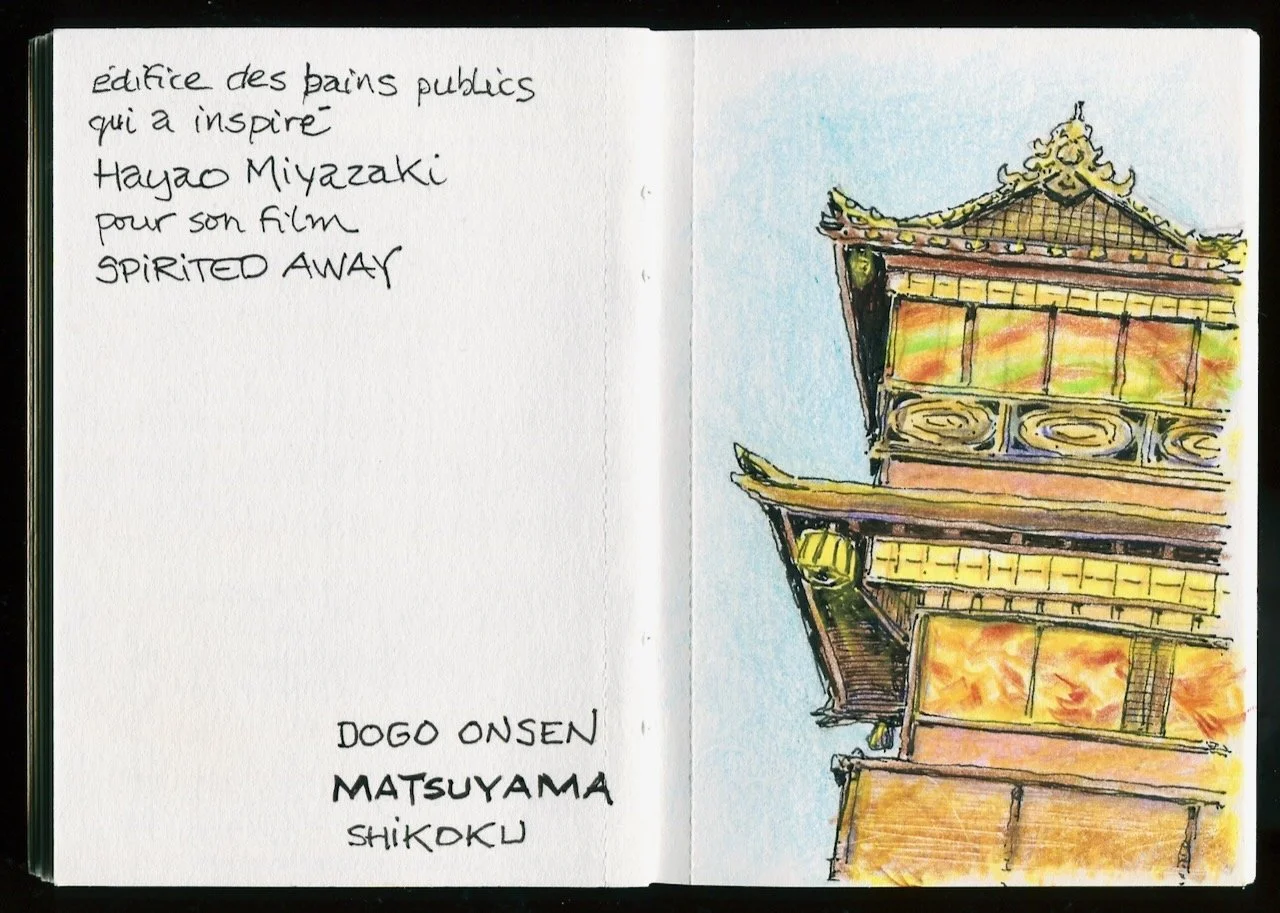 édifice des bains publics
qui a inspiré
Hayao Miyazaki
pour son film
SPIRITED AWAY
DOGO ONSEN
MATSUYAMA
SHIKOKU